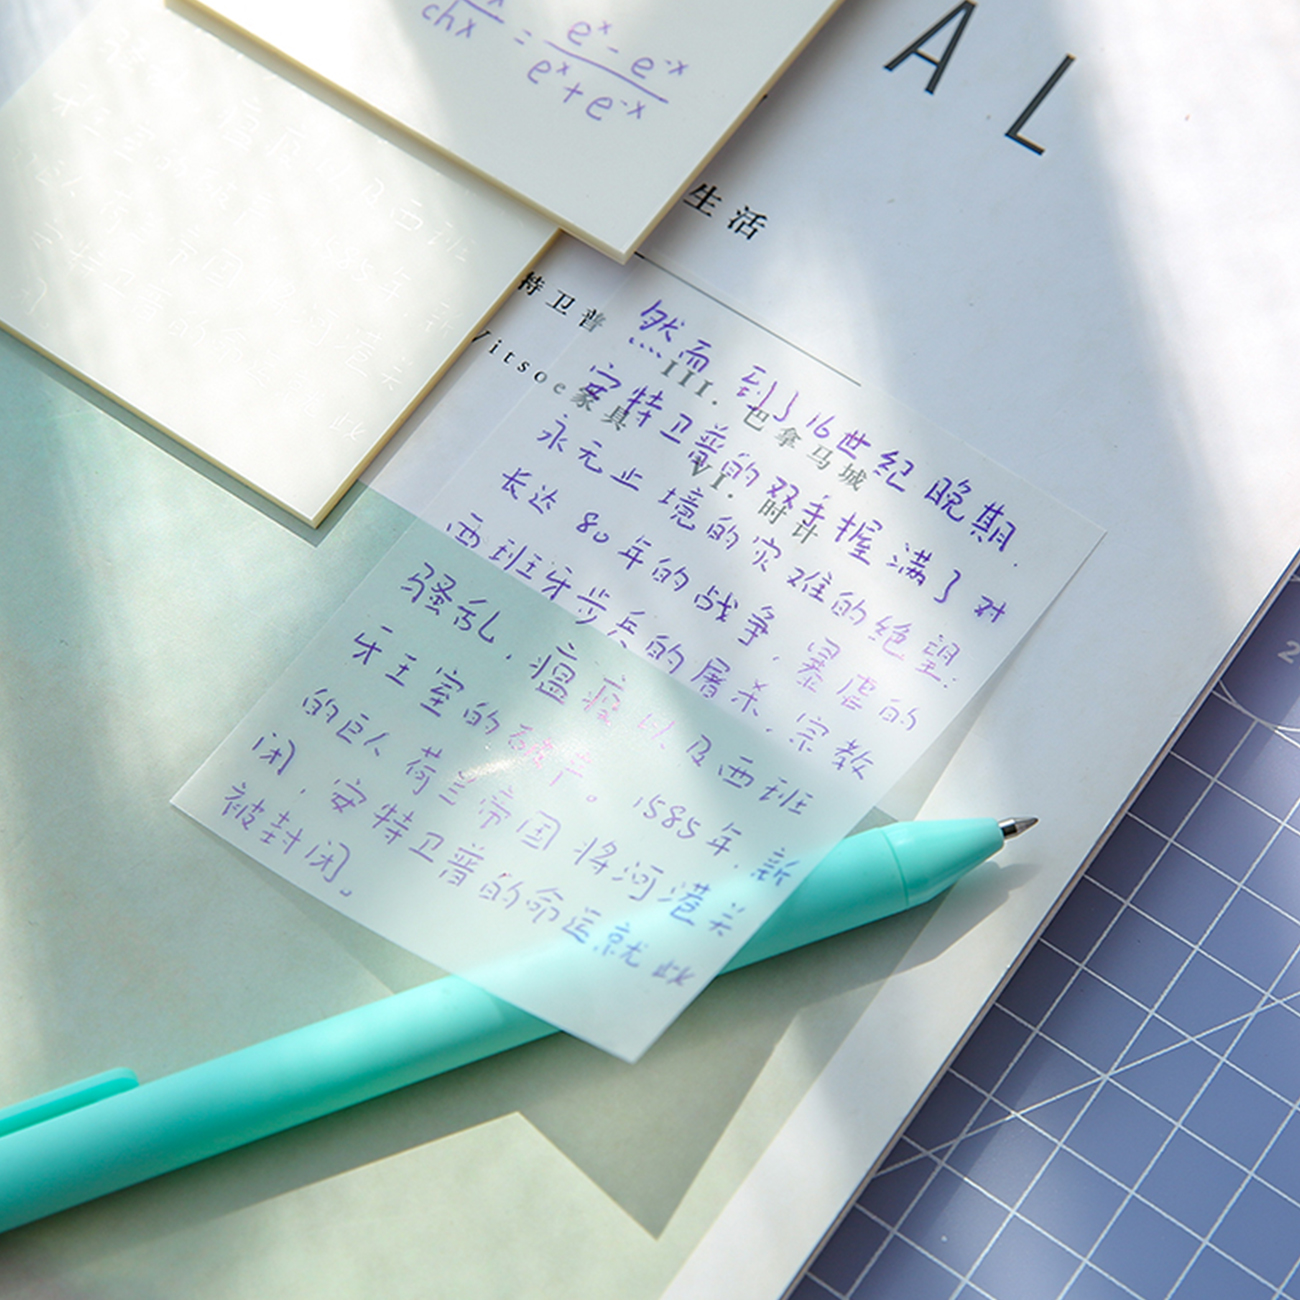 chx = e^x - e^-x
e^x + e^-x
A L
生活
特卫普
Vitsoe家具
III. 巴拿马城
VI. 时计
然而到了16世纪晚期.
安特卫普的双手握满了对
永无止境的灾难的绝望:
长达80年的战争,暴虐的
西班牙步兵的屠杀,宗教
骚乱,瘟疫以及西班
牙王室的破产。1585年,新
的巨人荷兰帝国将河港关
闭,安特卫普的命运就此
被封闭。
2